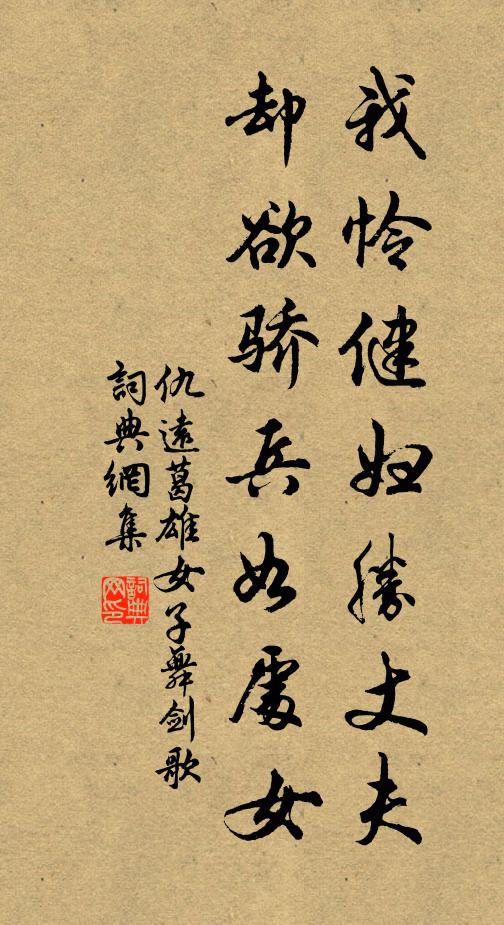 我怜健妇勝丈夫
却欲骄兵如處女
仇遠葛雄女子舞剑歌
詞典網集
詞典网印